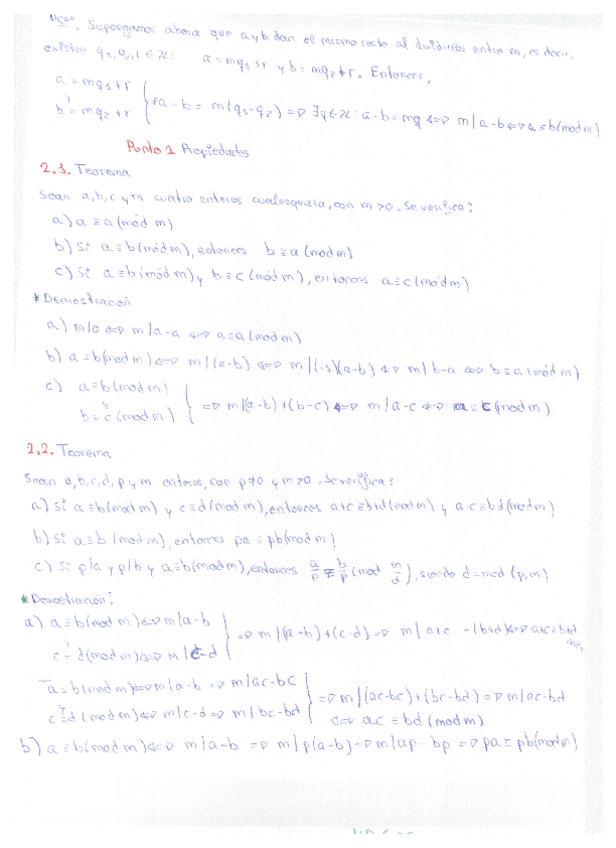 Supongamos ahora que a y b dan el mismo resto al dividirlos entre m, es decir,
existen q₁, q₂, r ∈ ℤ: a = mq₁+r y b = mq₂+r. Entonces,
a = mq₁+r
y
b = mq₂+r
} ⇒ a-b = m(q₁-q₂) ⇒ ∃q∈ℤ: a-b = mq ⇔ m|a-b ⇔ a≡b(mod m)
Punto 2 Propiedades
2.1. Teorema
Sean a,b,c y m cuatro enteros cualesquiera, con m>0. Se verifica:
a) a≡a (mód m)
b) Si a≡b(mód m), entonces b≡a (mod m)
c) Si a≡b(mód m) y b≡c (mód m), entonces a≡c (mód m)
* Demostración
a) m|0 ⇔ m|a-a ⇔ a≡a(mod m)
b) a≡b(mod m) ⇔ m|(a-b) ⇔ m|(-1)(a-b) ⇔ m|b-a ⇔ b≡a (mód m)
c) a≡b(mod m)
y
b≡c (mod m)
} ⇒ m|(a-b)+(b-c) ⇔ m|a-c ⇔ a≡c (mod m)
2.2. Teorema
Sean a,b,c,d,p y m enteros, con p≠0 y m>0. Se verifica:
a) Si a≡b(mod m) y c≡d(mod m), entonces a+c≡b+d(mod m) y a·c≡bd(mod m)
b) Si a≡b (mod m), entonces pa≡pb(mod m)
c) Si p|a y p|b y a≡b(mod m), entonces a/p ≡ b/p (mod m/d), siendo d=mcd (p,m)
* Demostración:
a) a≡b(mod m) ⇔ m|a-b
y
c≡d(mod m) ⇔ m|c-d
} ⇒ m|(a-b)+(c-d) ⇒ m|a+c -(b+d) ⇔ a+c≡b+d
a≡b(mod m) ⇔ m|a-b ⇒ m|ac-bc
y
c≡d(mod m) ⇔ m|c-d ⇒ m|bc-bd
} ⇒ m|(ac-bc)+(bc-bd) ⇒ m|ac-bd
⇔ ac≡bd (mod m)
b) a≡b(mod m) ⇔ m|a-b ⇒ m|p(a-b) ⇒ m|ap-bp ⇒ pa≡pb(mod m)